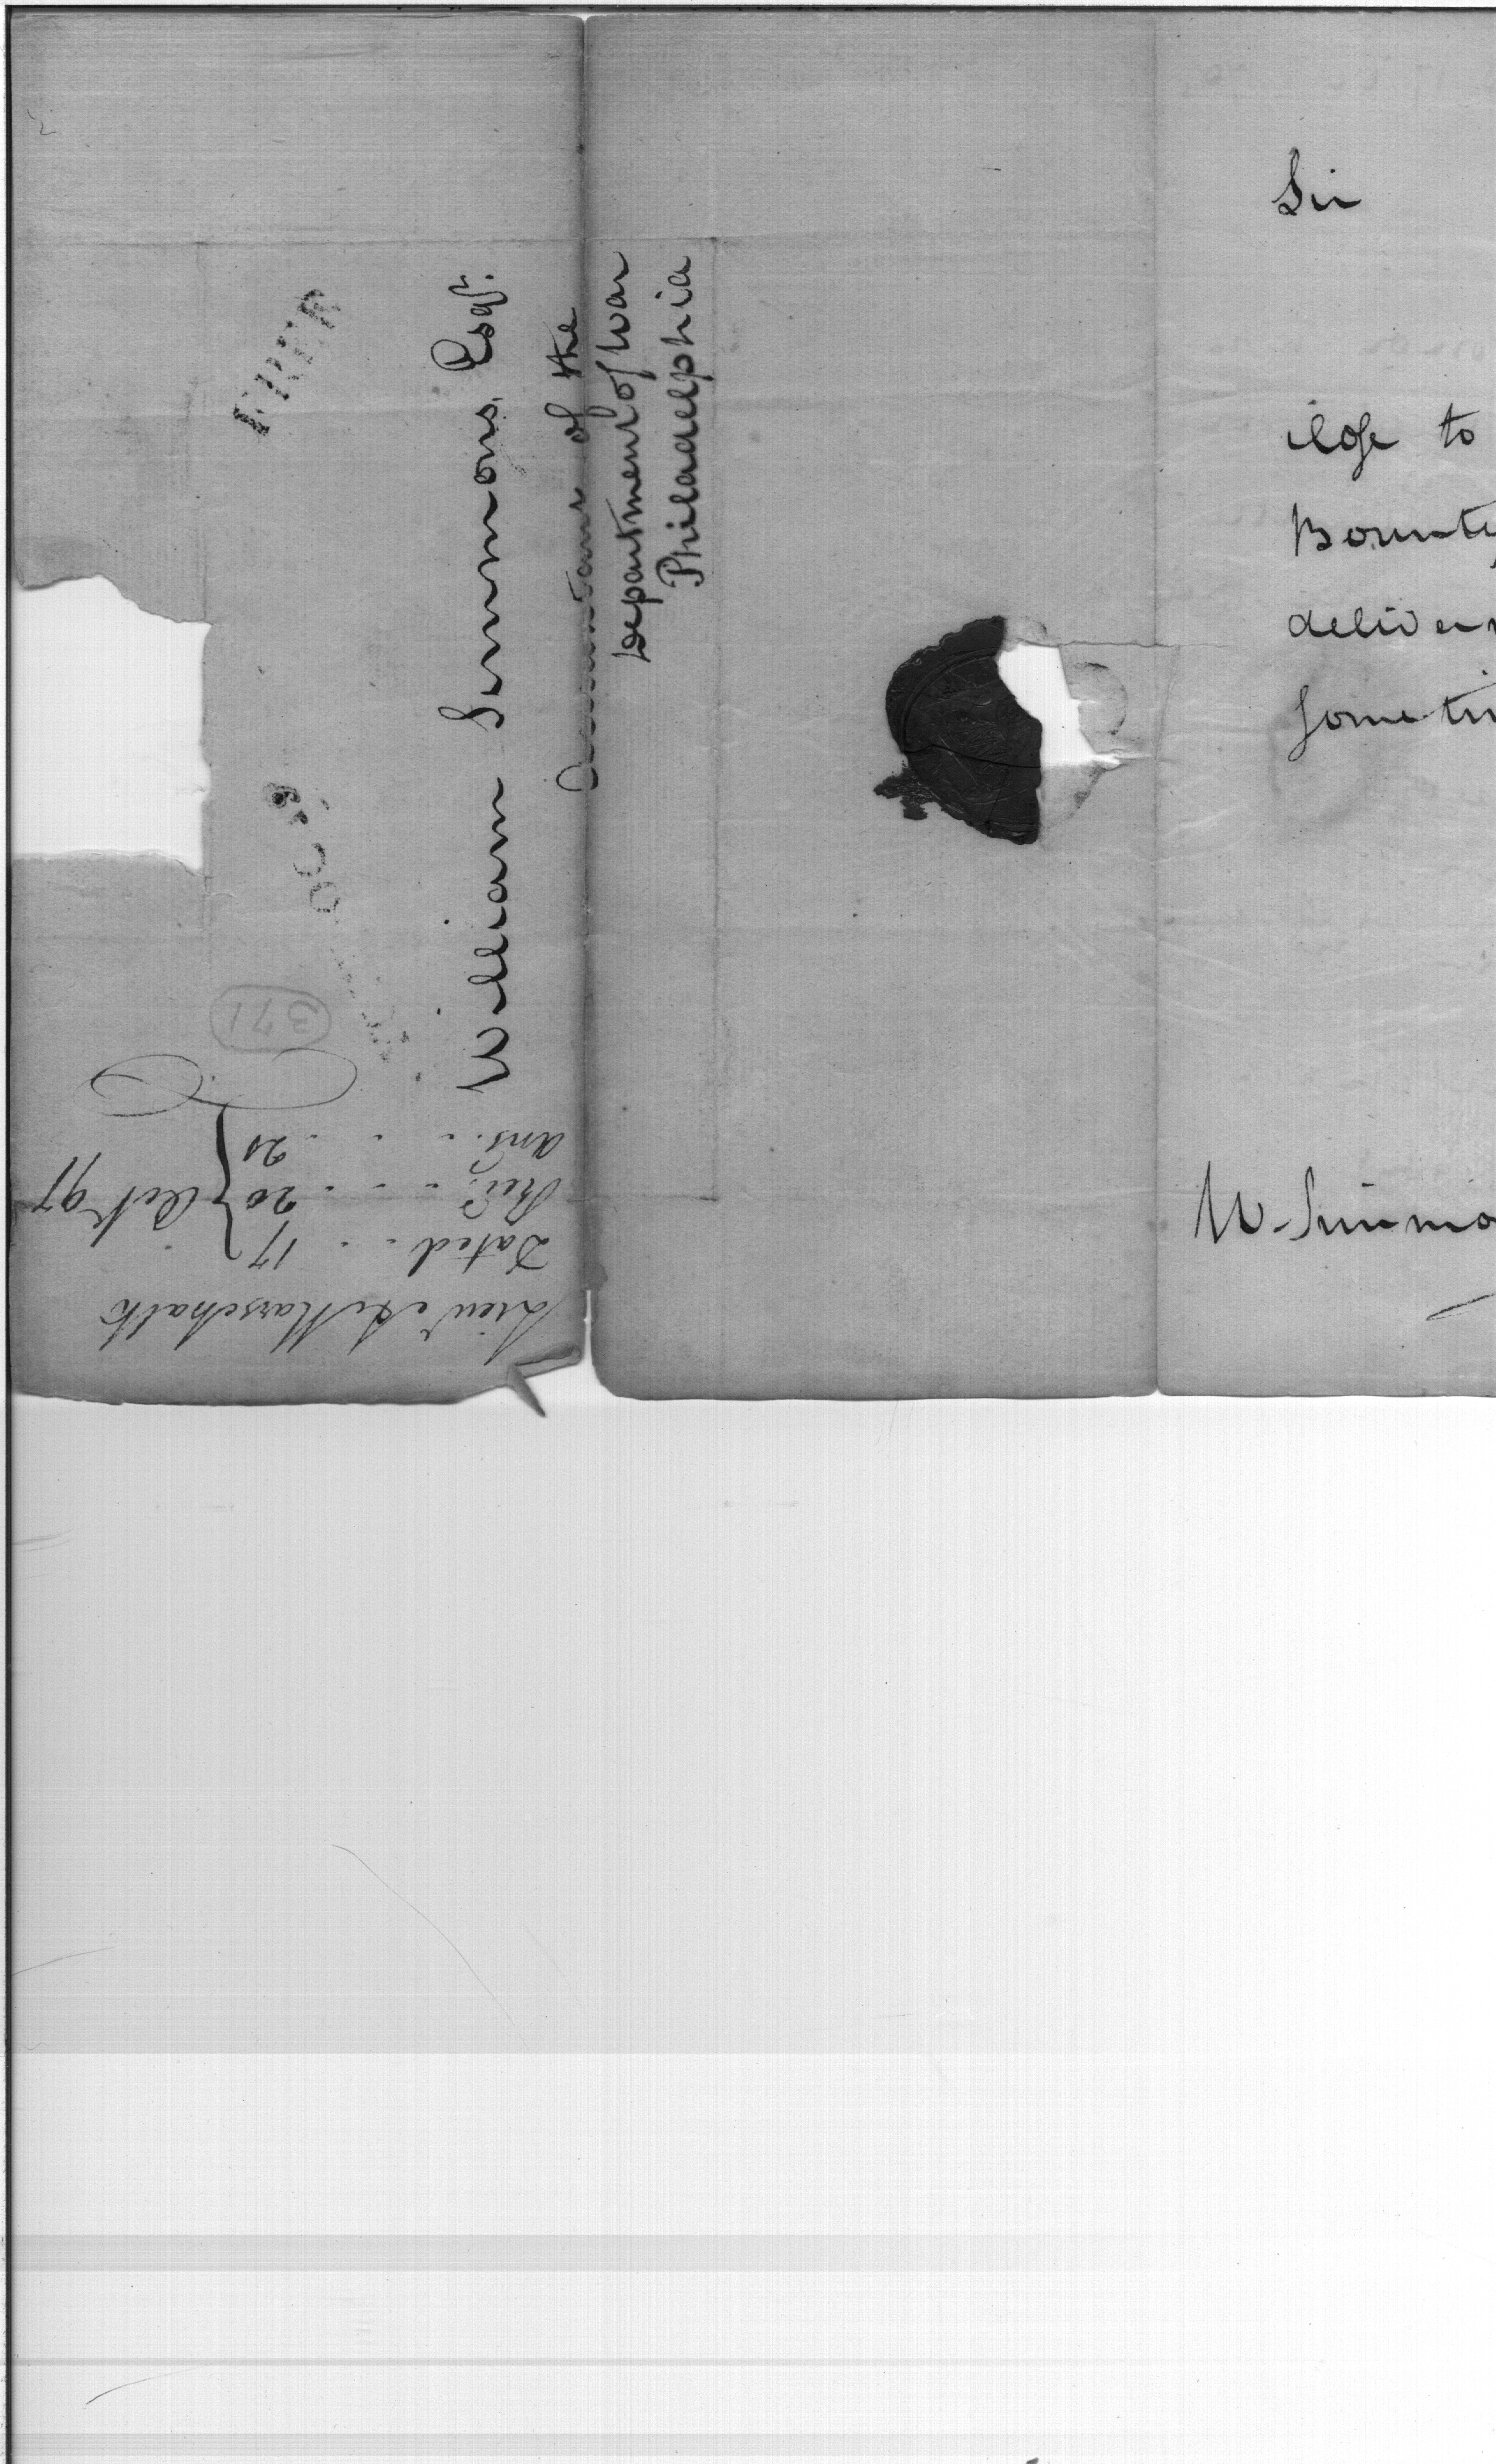 FREE
OC 19
William Simmons, Esqr.
Accountant of the
Department of War
Philadelphia
371
Lieut A. Marschalk
Dated . . 17
Recd . . . 20 } Oct 97
ans. . . . 20
Sir
close to
Bounty
deliver
sometim
W. Simmo